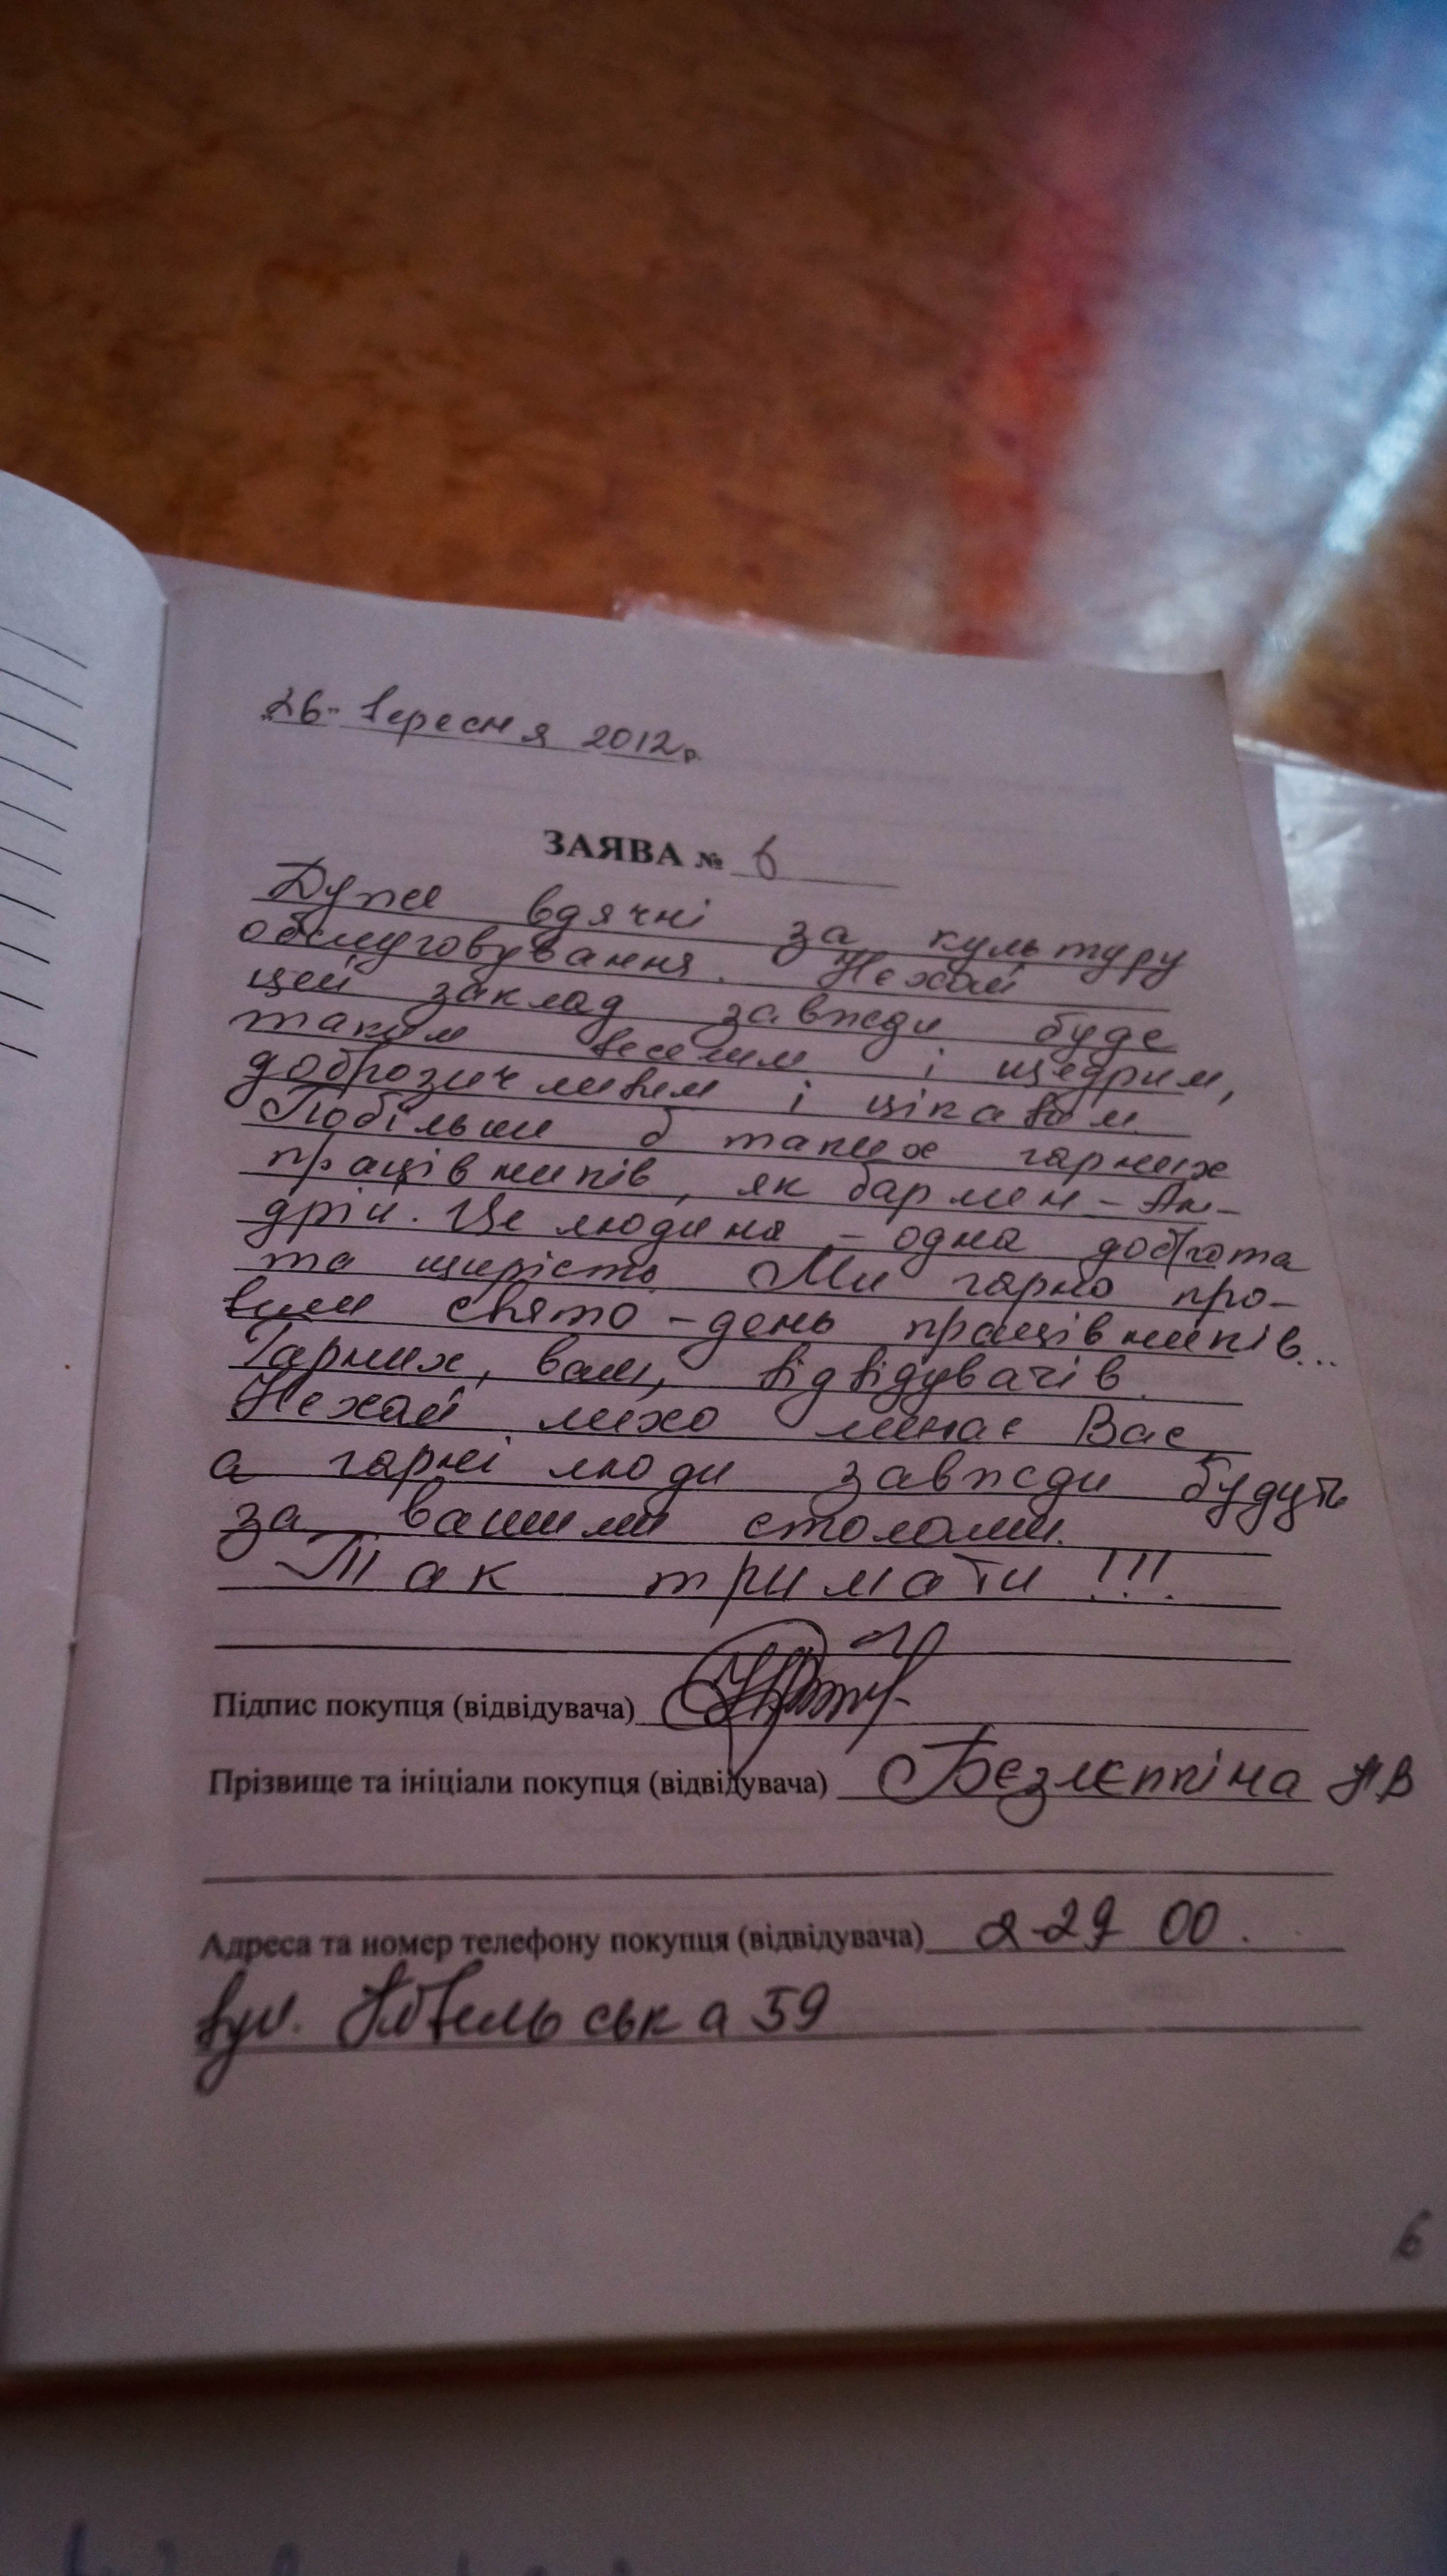 „26" вересня 2012р.
ЗАЯВА № 6
Дуже вдячні за культуру
обслуговування. Нехай
цей заклад завжди буде
таким веселим і щедрим,
доброзичливим і цікавим.
Побільше б таких гарних
працівників, як бармен – Ан-
дрій. Це людина – одна доброта
та щирість. Ми гарно про-
вели свято – день працівників...
Гарних, вам, відвідувачів.
Нехай лихо минає Вас,
а гарні люди завжди будуть
за вашими столами.
Так тримати!!!
Підпис покупця (відвідувача)
Прізвище та ініціали покупця (відвідувача) Безлєпкіна Н.В
Адреса та номер телефону покупця (відвідувача) 2-29 00.
вул. 59
6